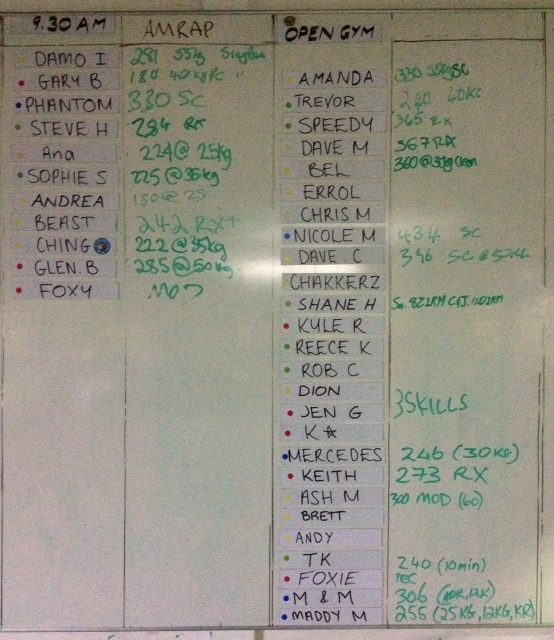 9.30 AM AMRAP
DAMO I 281 55kg
GARY B 180 40kg PC "
PHANTOM 330 SC
STEVE H 284 RX
Ana 224 @ 25kg
SOPHIE S 225 @ 35kg
ANDREA 180 @ 25
BEAST 242 RX+
CHING 222 @ 35kg
GLEN.B 285 @ 50kg
FOXY
OPEN GYM
AMANDA 330 SC
TREVOR 240 40KG
SPEEDY 365 RX
DAVE M 367 RX
BEL 360 @ 30kg clean
ERROL
CHRIS M
NICOLE M 434 SC
DAVE C 346 SC
CHAKKERZ
SHANE H
KYLE R
REECE K
ROB C
DION
JEN G 3SKILLS
K
MERCEDES 246 (30KG)
KEITH 273 RX
ASH M 300 MOD (60)
BRETT
ANDY
TK 240 (10min)
FOXIE rec
M & M 306
MADDY M 255 (25KG, 12KG, KR)